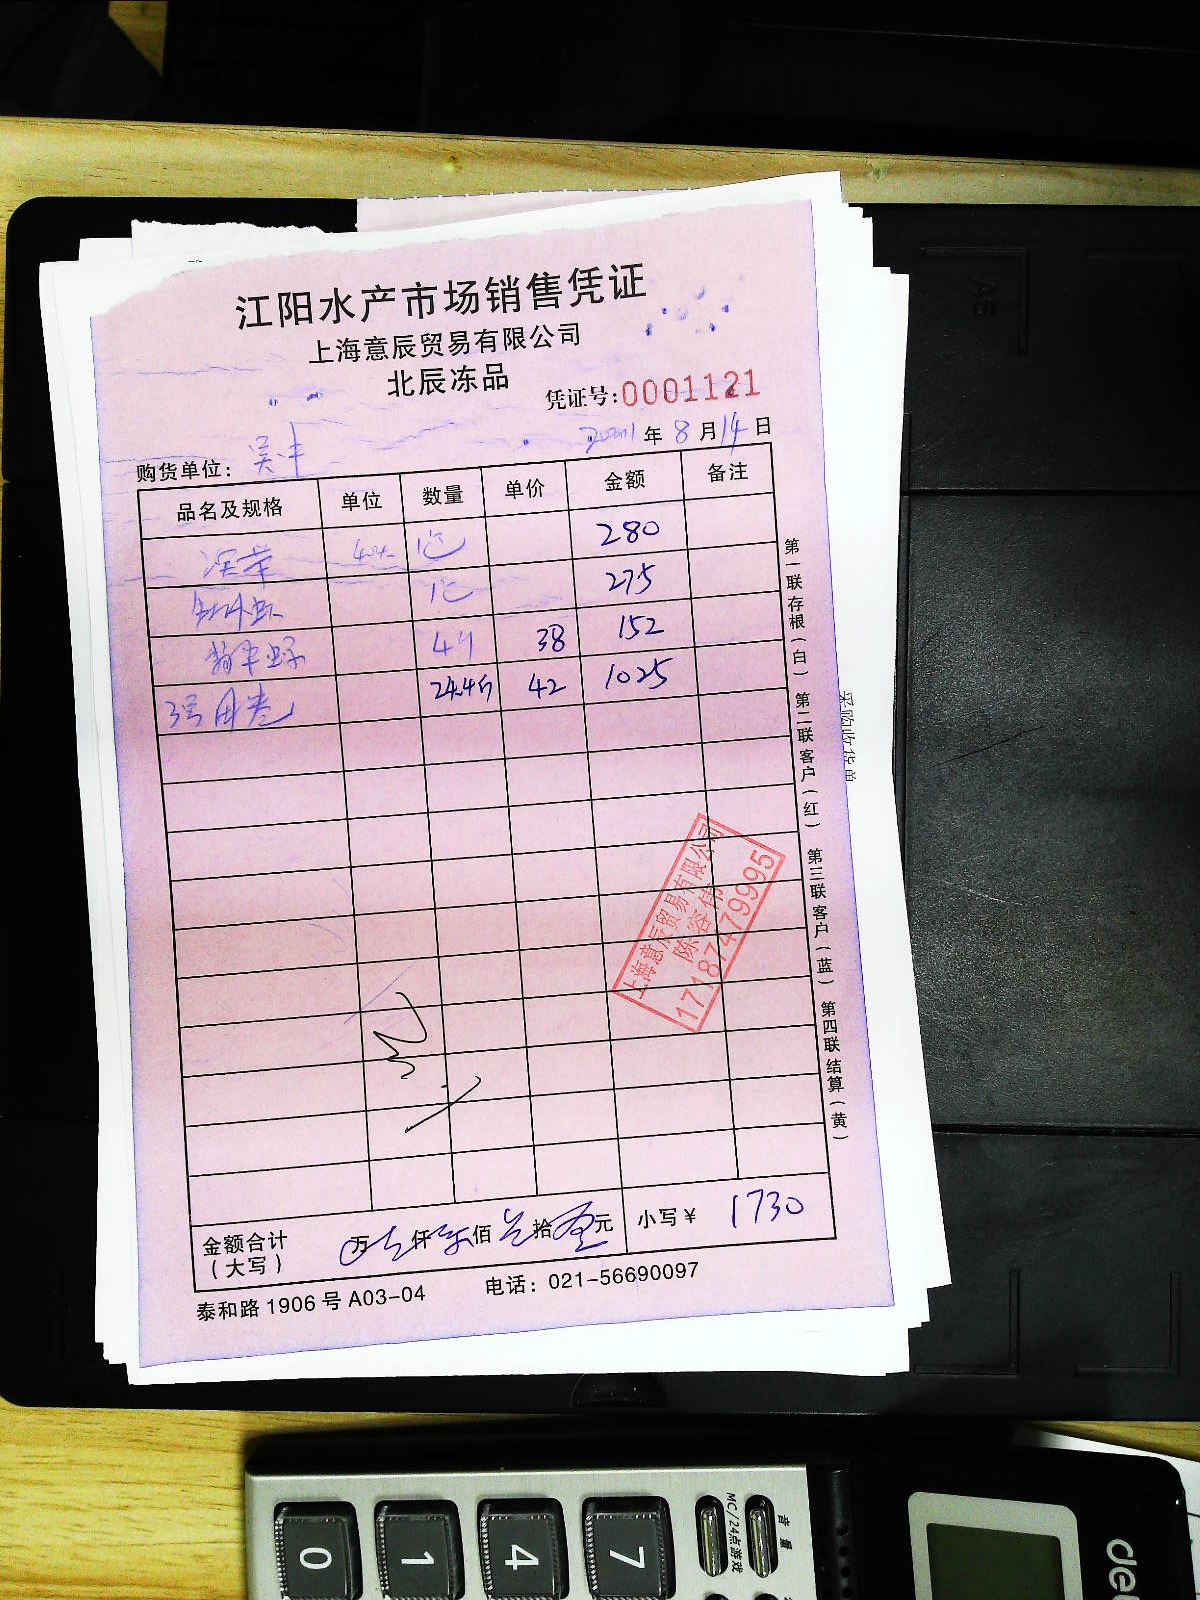 江阳水产市场销售凭证
上海意辰贸易有限公司
北辰冻品
凭证号:0001121
购货单位: 2021年8月14日
品名及规格 单位 数量 单价 金额 备注
280
275
4斤 38 152
24.4斤 42 1025
上海意辰贸易有限公司
陈容伟
17187479995
金额合计(大写) 万 仟 佰 拾 元 小写¥ 1730
泰和路1906号A03-04 电话: 021-56690097
第一联存根(白) 第二联客户(红) 第三联客户(蓝) 第四联结算(黄)
采购收货单
A5
0 1 4 7
MC/24点游戏
音量
de